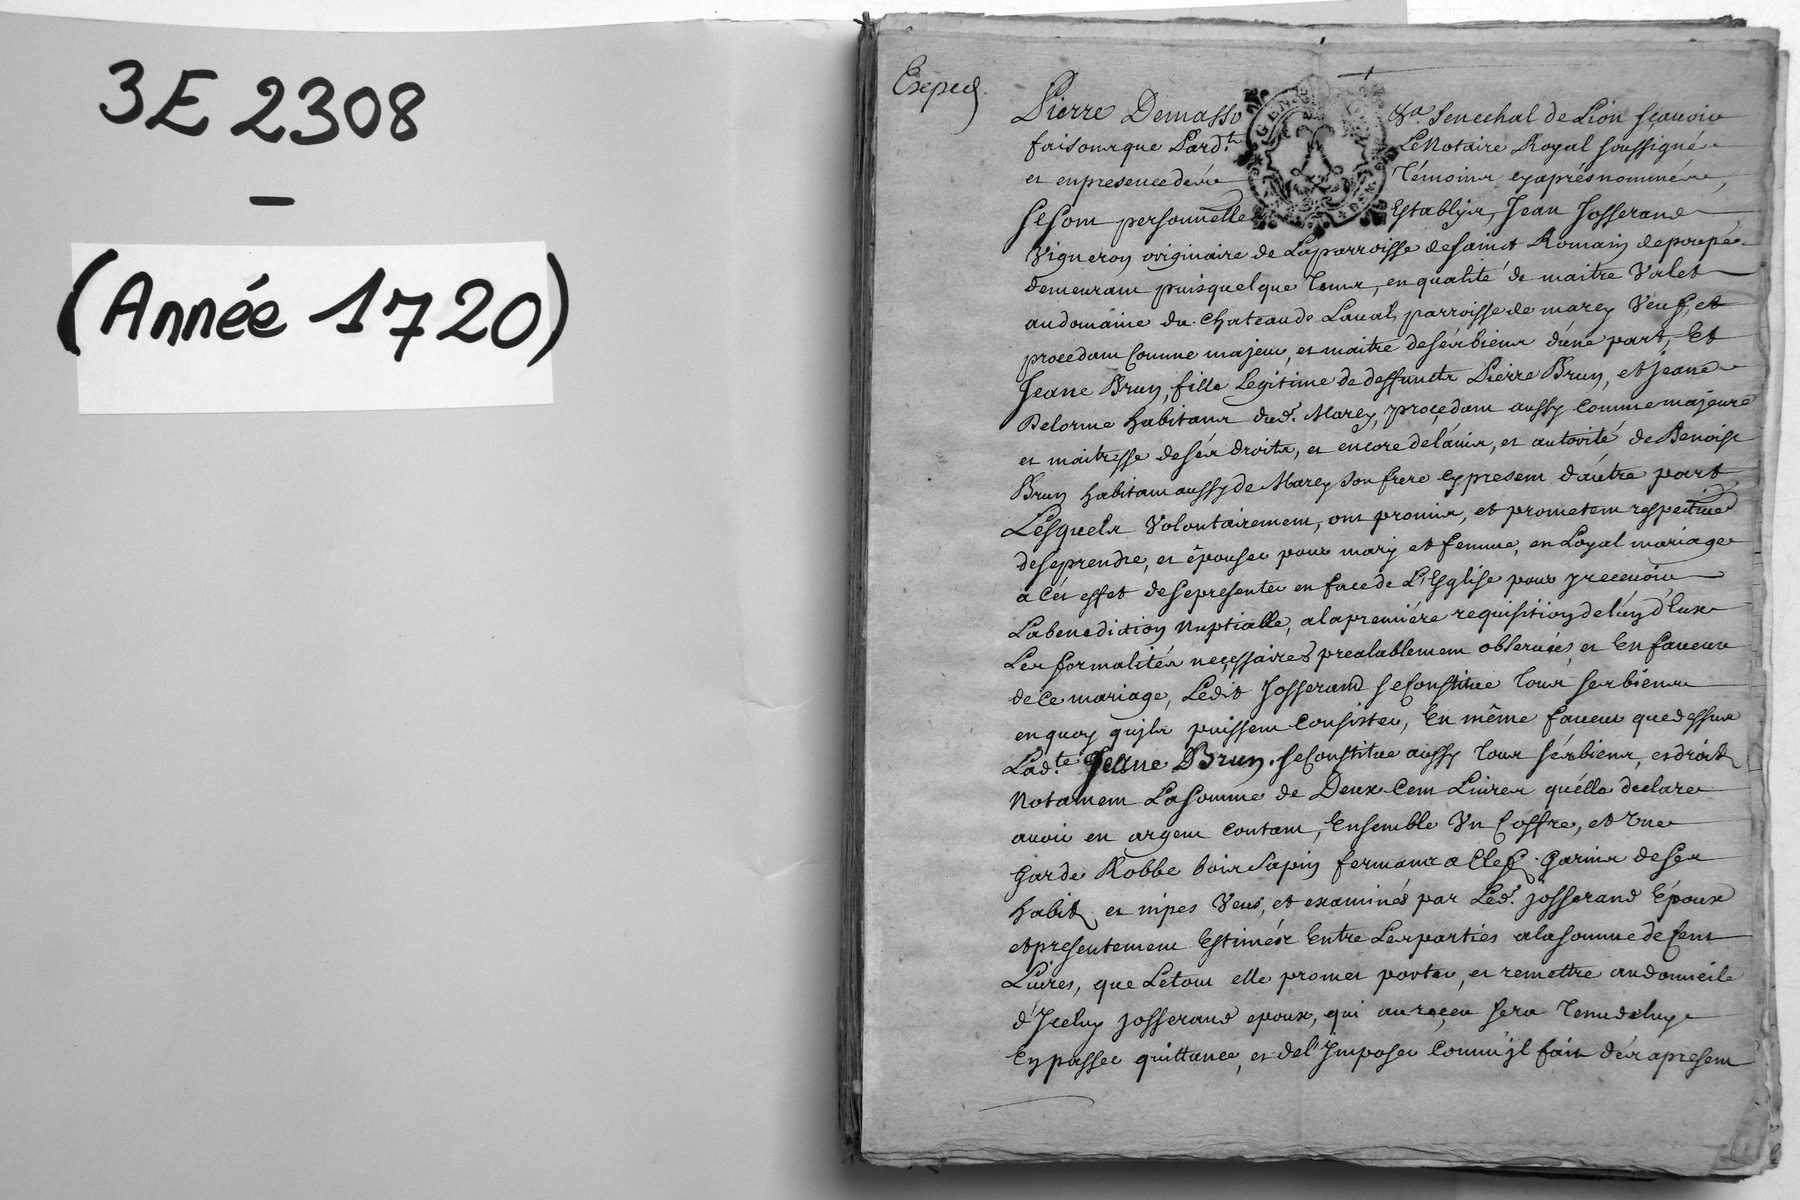 3E 2308
–
(Année 1720)
Exped.
Pierre Demasso Senechal de Lion sçavoir
faisons que Pard.t Le Notaire Royal soussigné
et en presence des Témoins cy aprés nommés,
se sont personnelle Establys, Jean Josserand
Vigneron originaire de La parroisse de saint Romain de popé
demeurant puis quelque Tems, en qualité de maitre Valet
au domaine du Chateau de Laval, parroisse de marcy Veuf, et
procedant Comme majeur, et maitre de sés biens d'une part, Et
Jeane Brun, fille Legitime de deffuncts Pierre Brun, et Jeane
Delorme habitans dud. Marcy, procedant aussy Comme majeure
et maitresse de sés droits, et encore de l'avis, et autorité de Benoist
Brun habitant aussy de Marcy son frere cy present d'autre part
Lesquels Volontairement, ont promis, et prometent respectived
de se prendre, et épouser pour mary et femme, en Loyal mariage
a Cét effet de se presenter en face de L'Eglise pour y recevoir
La benediction Nuptialle, a la premiére requisition de l'un d'Eux
Les formalités necessaires prealablement observées, et En faveur
de Ce mariage, Ledit Josserand se Constitue Tous ses biens
en quoy qu'jls puissent Consister, En même faveur que dessus
Lad.te Jeane Brun. se Constitue aussy Tous sés biens, et droits
Notament La somme de Deux Cent Livres qu'élle declare
avoir en argent Contant, Ensemble Un Coffre, et Une
Garde Robbe bois Sapin fermants a Clef Garnis de ses
habits et nipes Veus, et examinés par Led. Josserand Epoux
et presentement Estimés Entre Les parties a la somme de Cent
Livres, que Le tout elle promet porter, et remettre au domicile
d'Jceluy Josserand epoux, qui au reçeu sera Tenu de luy
En passer quittance, et de l'Jmposer Comm'jl fait dés a present